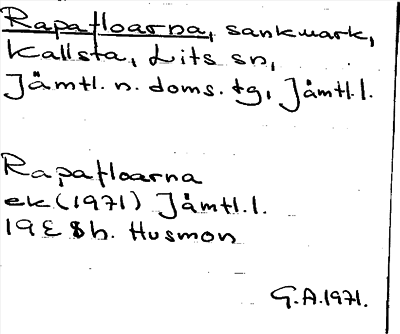 Rapafloarna, sankmark,
Kallsta, Lits sn,
Jämtl. n. doms. tg, Jämtl.l.
Rapafloarna
ek (1971) Jämtl.l.
19E 8h. Husmon
G.A. 1971.